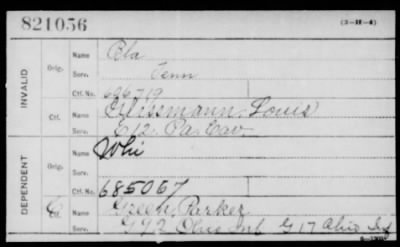 821056
(3-H-4)
INVALID
Orig.
Name Bla
Serv. Tenn
Ctf. No. 626719
Ctf.
Name Louis
Serv. E 12. Pa. Cav.
DEPENDENT
Orig.
Name Whi
Serv.
Ctf. No. 685067
C
Ctf.
Name Green, Parker
Serv. Ohio Inf G 17 Ohio Inf